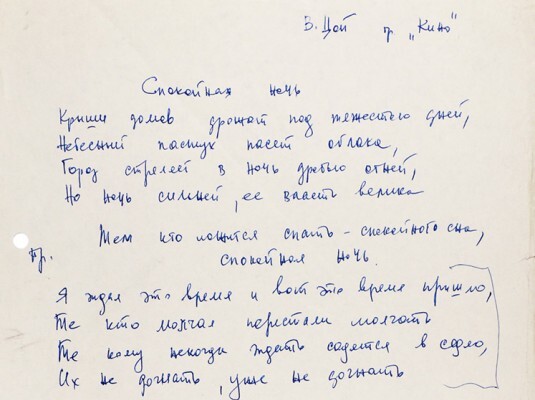 В. Цой гр „Кино"
Спокойная ночь
Крыши домов дрожат под тяжестью дней,
Небесный пастух пасет облака,
Город стреляет в ночь дробью огней,
Но ночь сильней, ее власть велика
Тем кто ложится спать – спокойного сна,
пр. спокойная ночь.
Я ждал это время и вот это время пришло,
Те кто молчал перестали молчать
Те кому некогда ждать садятся в седло,
Их не догнать, уже не догнать